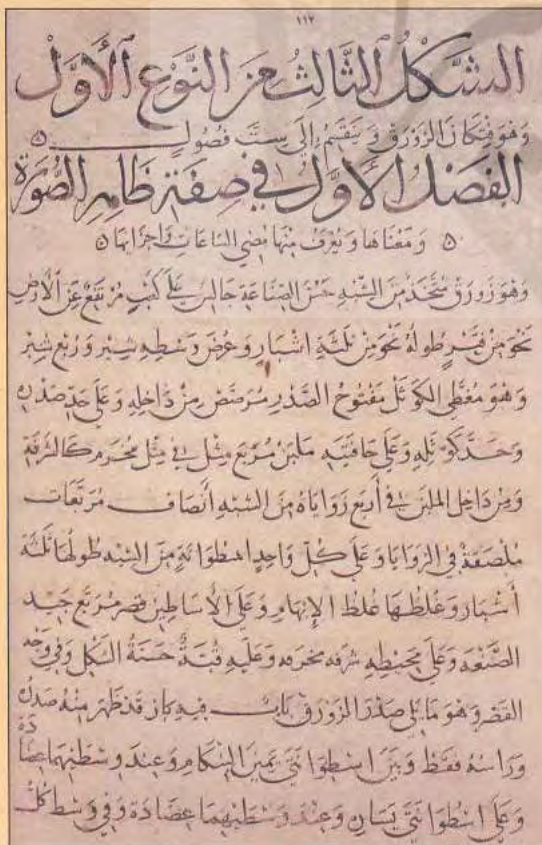 ١١٧
الشكل الثالث من النوع الأول
وهو فنكان الزورق وينقسم إلى ست فصول
الفصل الأول في صفة ظاهر الصورة
ومعناها ويعرف منها مضي الساعات واجزايها
وهو زورق متخذ من الشبه حسن الصناعة جالس على كرسي مرتفع عن الأرض
نحو من فتر طوله نحو من ثلثة اشبار وعرض وسطه شبر وربع شبر
وهو مغطى الكوثل مفتوح الصدر مرصص من داخله وعلى حد صدره
وحد كوثله وعلى حافتيه ملبن مربع مثل في مثل مخرم كالشرفة
ومن داخل الملبن في أربع زواياه من الشبه أنصاف مربعات
ملصقة في الزوايا وعلى كل واحد اسطوانة من الشبه طولها ثلثة
أشبار وغلظها غلظ الإبهام وعلى الأساطين قصر مربع جيد
الصنعه وعلى محيطه شرفه مخرمه وعليه قبة حسنة الشكل وفي وجه
القصر وهو ما يلي صدر الزورق باب فيه باز قد ظهر منه صدره
وراسه فقط وبين اسطوانتي يمين البنكام وعند وسطيهما عضادة
وعلى اسطوانتي يسان وعند وسطيهما عضادة وفي وسط كل